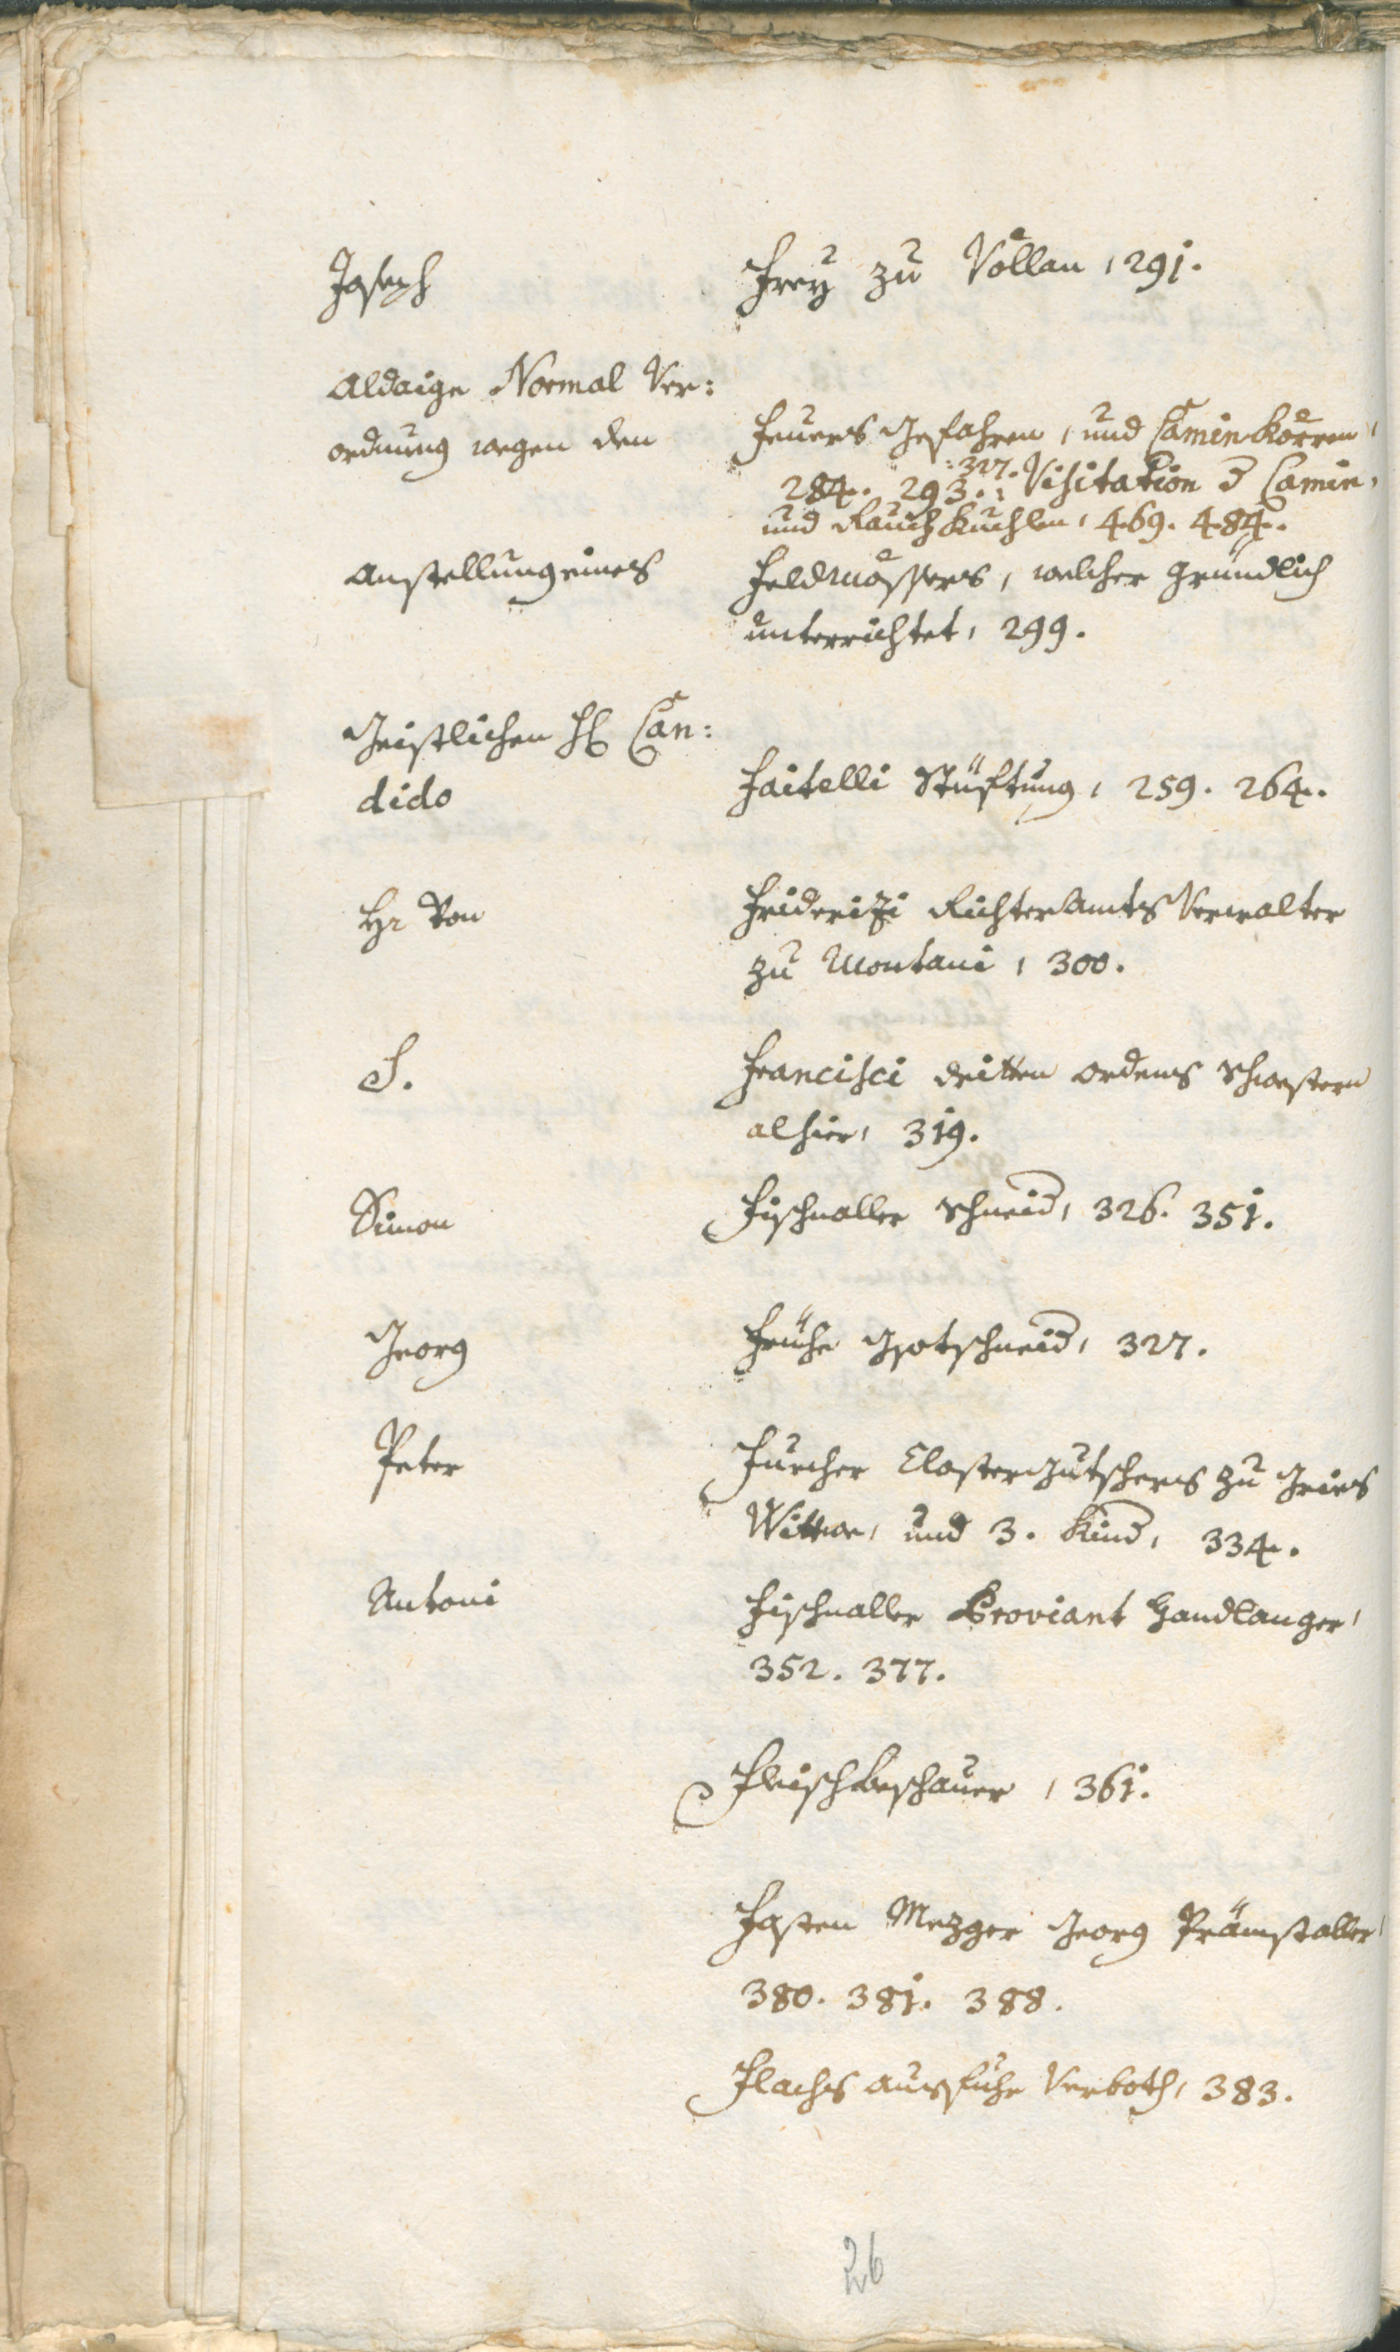 Joseph Frey zu Völlan, 291.
Aldaige Normal Ver:
ordnung wegen den Feuers Gefahren, und Camin Körren,
:327.
284. 293.: Visitation d Camin,
und Rauch Kuchlen, 469. 484.
Anstellung eines Feldmössers, welcher gründlich
unterrichtet, 299.
Geistlichen H Can:
dido Faitelli Stüftung, 259. 264.
Hr Von Friderizi Richter Amts Verwalter
zu Montani, 300.
S. Francisci dritten ordens Schwestern
alhier, 319.
Simon Fischnaller Schneid, 326. 351.
Georg Frühe schneid, 327.
Peter Furcher Closter Gutschers zu Gries
Wittwe, und 3. Kind, 334.
Antoni Fischnaller Proviant Handlanger,
352. 377.
Fleischbeschauer, 361.
Fasten Mezger Georg Prämstaller,
380. 381. 388.
Flachs ausfuhr Verboth, 383.
26